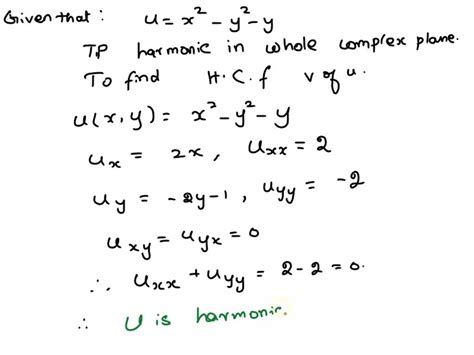 Given that : u = x² - y² - y
TP harmonic in whole complex plane.
To find H.C.f v of u.
u(x,y) = x² - y² - y
u_x = 2x, u_xx = 2
u_y = -2y-1, u_yy = -2
u_xy = u_yx = 0
∴ u_xx + u_yy = 2-2 = 0.
∴ U is harmonic.